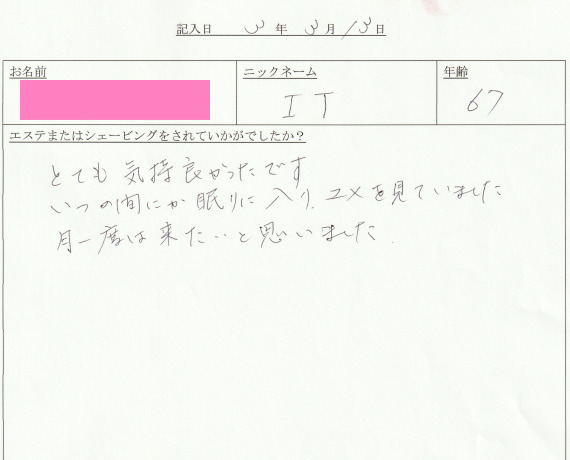 記入日 3年 3月 13日
お名前 ニックネーム 年齢
IT 67
エステまたはシェービングをされていかがでしたか？
とても気持良かったです
いつの間にか眠りに入り、ユメを見ていました
月一度は来たいと思いました.